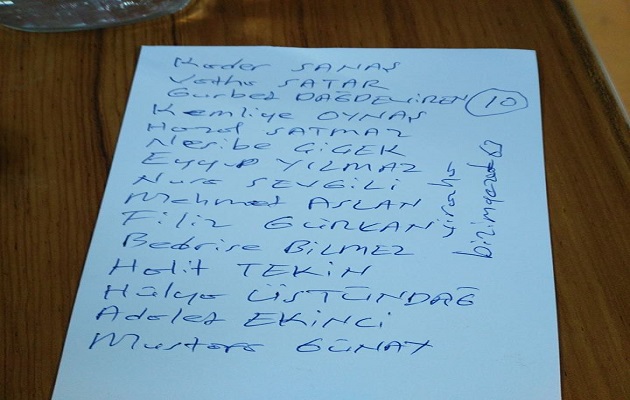 Kader SANAŞ
Vatha SATAR
Gurbet DAĞDEVİREN 10
Kemliye OYNAŞ
Hazal SATMAZ
Nesibe ÇİÇEK
Eyyup YILMAZ
Nura SEVGİLİ
Mehmet ASLAN
Filiz GÜRKAN
Bedrise BİLMEZ
Halit TEKİN
Hülya ÜSTÜNDAĞ
Adalet EKİNCİ
Mustafa GÜNAY